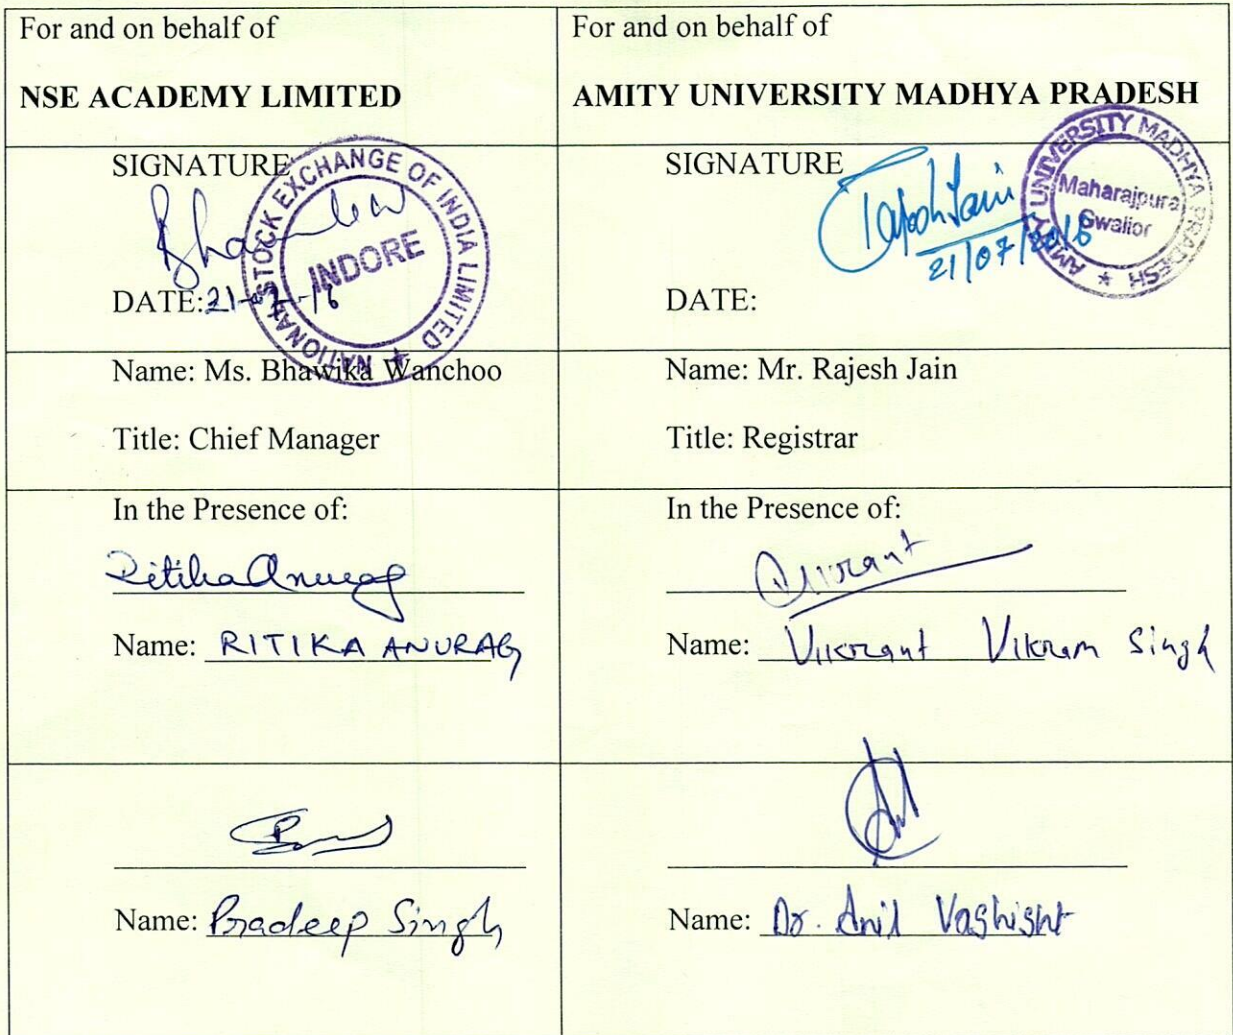 For and on behalf of
NSE ACADEMY LIMITED
For and on behalf of
AMITY UNIVERSITY MADHYA PRADESH
SIGNATURE
NATIONAL STOCK EXCHANGE OF INDIA LIMITED
INDORE
DATE: 21-7-16
SIGNATURE
Rajesh Jain
21/07/2016
AMITY UNIVERSITY MADHYA PRADESH
Maharajpura
Gwalior
DATE:
Name: Ms. Bhawika Wanchoo
Title: Chief Manager
Name: Mr. Rajesh Jain
Title: Registrar
In the Presence of:
Ritika Anurag
Name: RITIKA ANURAG
In the Presence of:
Vikrant
Name: Vikrant Vikram Singh
Name: Pradeep Singh
Name: Dr. Anil Vashisht